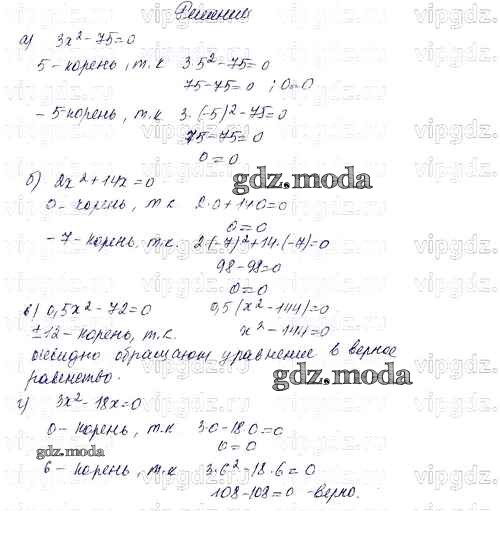 Решение
а) 3x² - 75 = 0
5 - корень, т.к 3·5² - 75 = 0
75 - 75 = 0 ; 0 = 0
- 5 корень, т.к 3·(-5)² - 75 = 0
75 - 75 = 0
0 = 0
б) 2x² + 14x = 0
gdz.moda
0 - корень, т.к 2·0 + 14·0 = 0
0 = 0
-7 - корень т.к. 2·(-7)² + 14·(-7) = 0
98 - 98 = 0
0 = 0
в) 0,5x² - 72 = 0 0,5(x² - 144) = 0
±12 - корень, т.к. x² - 144 = 0
очевидно обращают уравнение в верное
равенство.
gdz.moda
г) 3x² - 18x = 0
0 - корень, т.к 3·0 - 18·0 = 0
0 = 0
gdz.moda
6 - корень, т.к 3·6² - 18·6 = 0
108 - 108 = 0 - верно.
vipgdz.ru